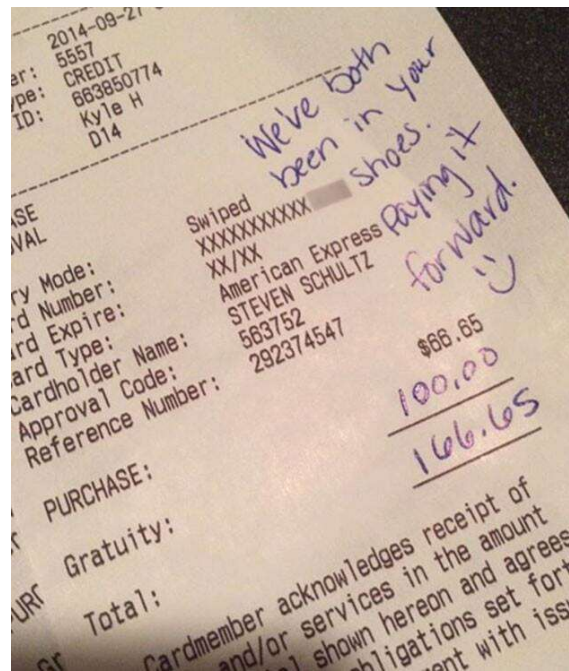 2014-09-27
er: 5557
ype: CREDIT
ID: 663850774
Kyle H
D14
We've both
been in your
shoes.
Paying it
forward.
ASE
VAL
ry Mode: Swiped
rd Number: XXXXXXXXXXX
ard Expire: XX/XX
ard Type: American Express
Cardholder Name: STEVEN SCHULTZ
Approval Code: 563752
Reference Number: 292374547
PURCHASE: $66.65
Gratuity: 100.00
Total: 166.65
Cardmember acknowledges receipt of
and/or services in the amount
shown hereon and agrees
obligations set fort
ent with issu